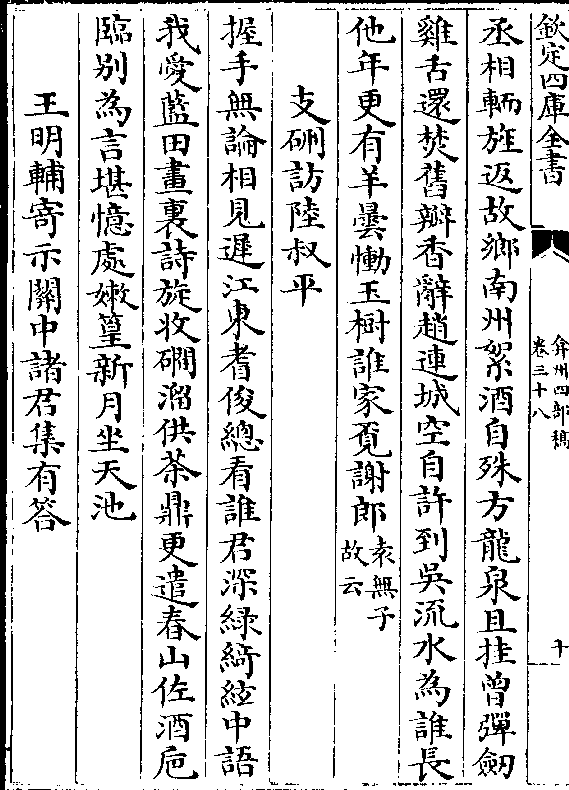 欽定四庫全書
弇州四部稿
卷三十八
十
丞相輀旌返故鄉南州絮酒自殊方龍泉且挂曾彈劒
雞舌還焚舊瓣香辭趙連城空自許到吳流水為誰長
他年更有羊曇慟玉樹誰家覔謝郎
袁無子
故云
支硎訪陸叔平
握手無論相見遲江東耆俊總看誰君深綠綺絃中語
我愛藍田畫裏詩旋收磵溜供茶鼎更遣春山佐酒卮
臨别為言堪憶處嫰篁新月坐天池
王明輔寄示關中諸君集有答